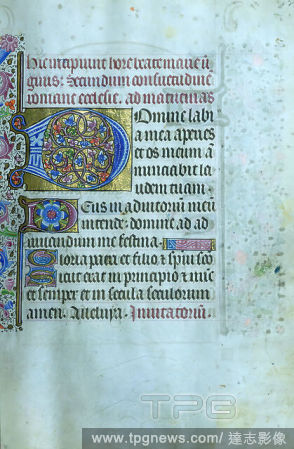 Hic incipiunt hore beate marie v̄
ginis: Secundum consuetudinē
romane ecclesie. ad matutinas
Domine labi
a mea aperies
et os meum ā
nunciabit la
udem tuam.
Deus in adiutoriū meū
intende: domine ad ad
iuuandum me festina.
Gloria patri et filio et spiri sco
Sicut erat in principio et nūc
et semper et in secula seculorum
amen. Alleluya. Inuitatoriū.
TPG
www.tpgnews.com / 達志影像